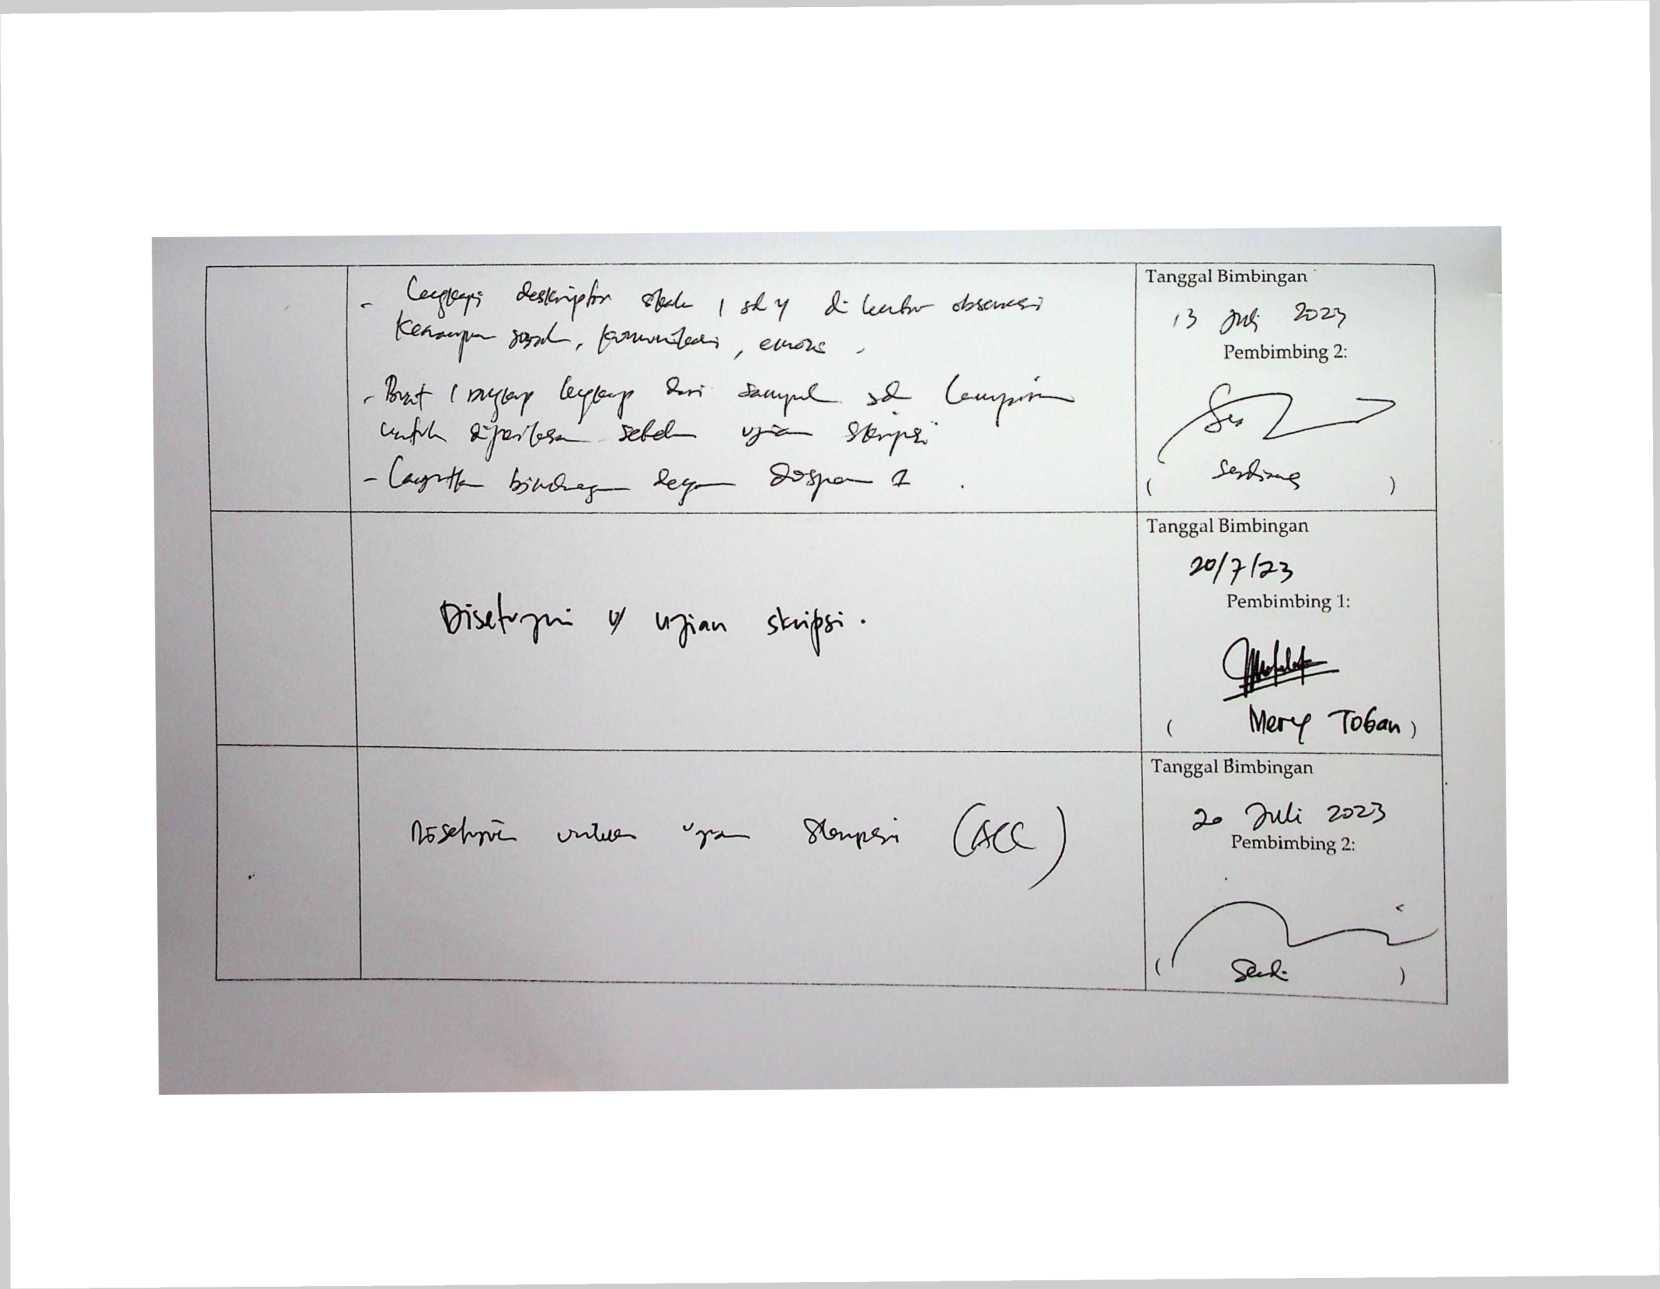 - Lengkapi deskriptor skala 1 sd 4 di lembar observasi
Kemampuan sosial, komunikasi, emosi.
- Buat 1 rangkap lengkap dari sampul sd lampiran
untuk diperiksa sebelum ujian skripsi
- Lanjutkan bimbingan dengan dospem 1.
Tanggal Bimbingan
13 Juli 2023
Pembimbing 2:
( )
Disetujui u/ ujian skripsi.
Tanggal Bimbingan
20/7/23
Pembimbing 1:
( Mery Toban )
Disetujui untuk ujian skripsi (ACC)
Tanggal Bimbingan
20 Juli 2023
Pembimbing 2:
( )